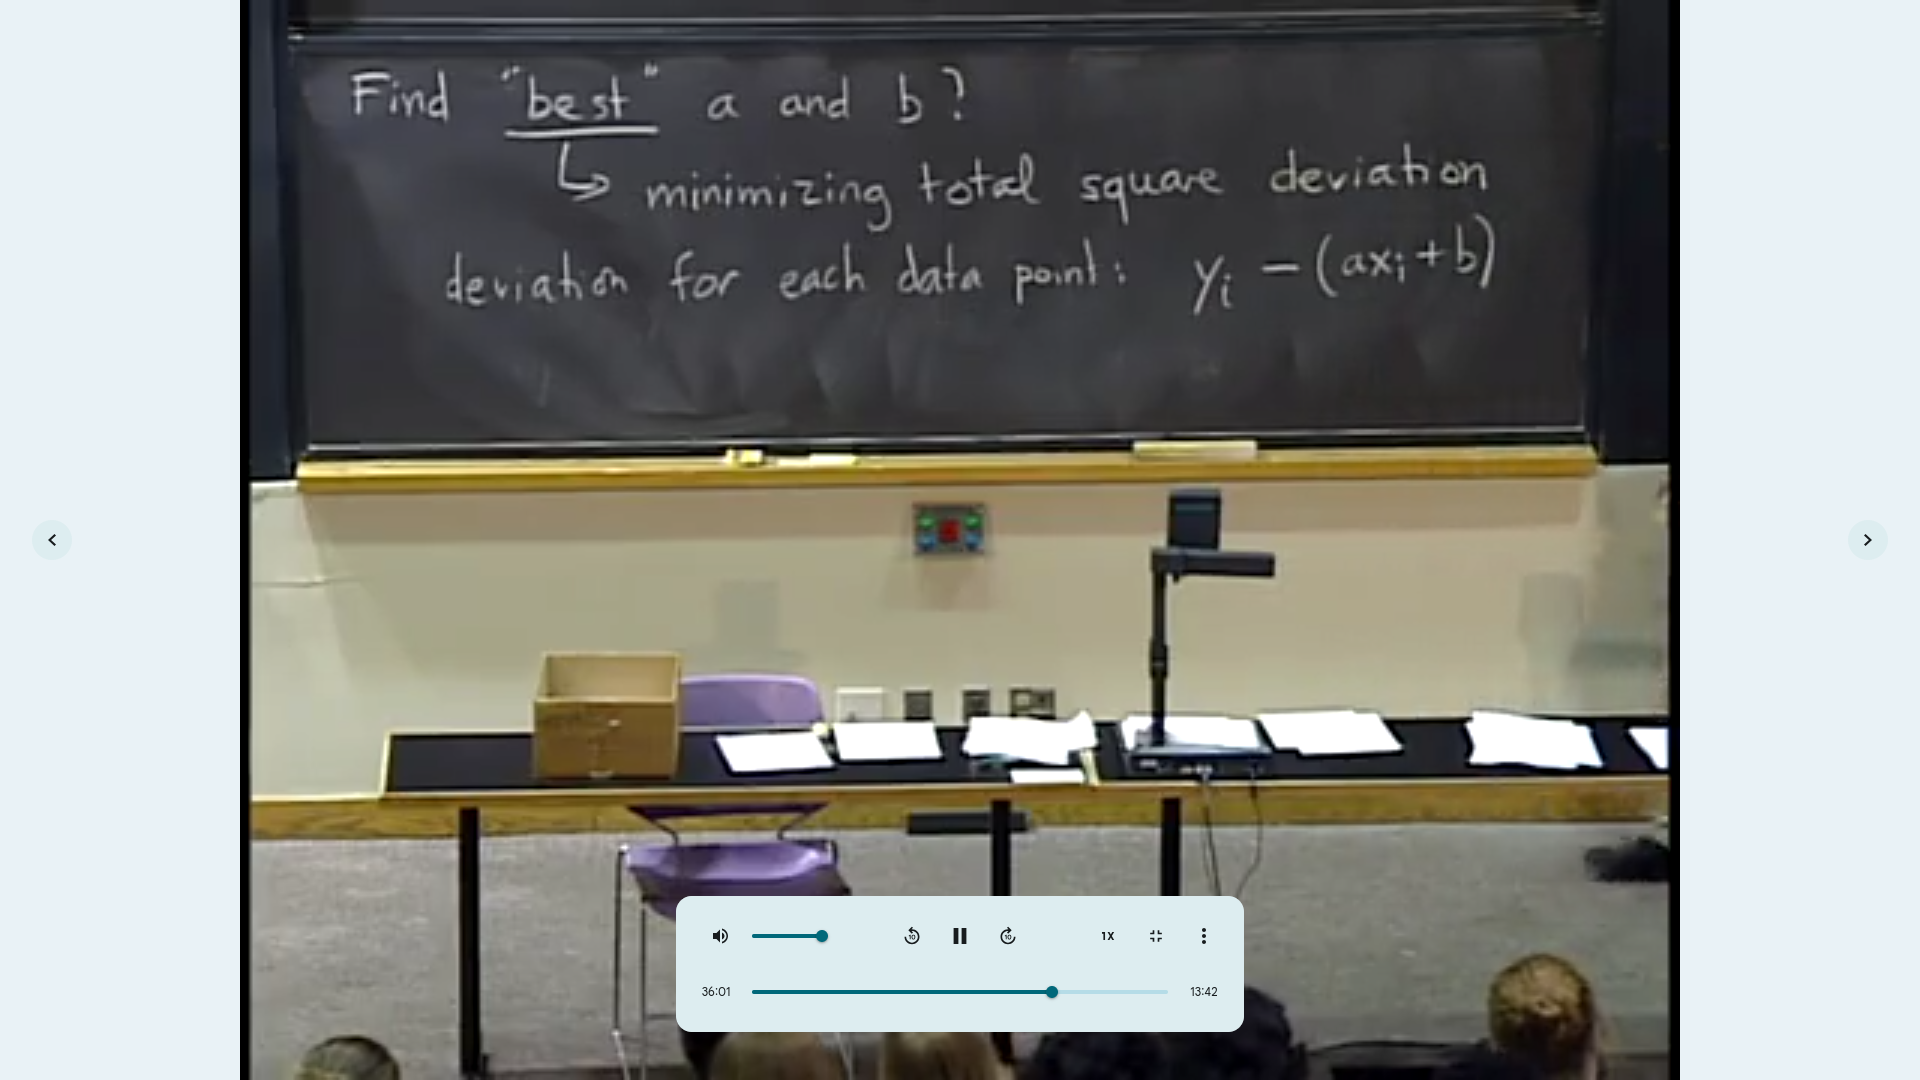 Find "best" a and b?
↳ minimizing total square deviation
deviation for each data point: yᵢ - (axᵢ + b)
10
10
1X
36:01
13:42